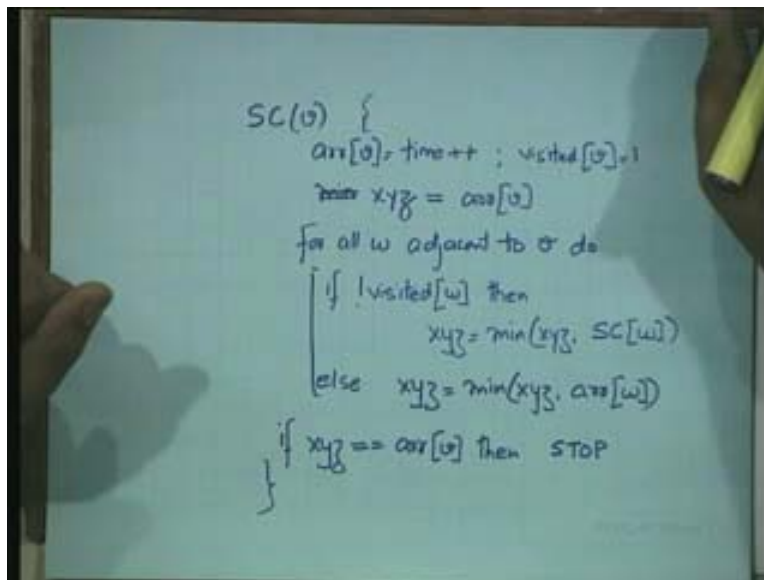 SC(v) {
arr[v]= time++ ; visited[v]=1
xyz = arr[v]
for all w adjacent to v do
if !visited[w] then
xyz = min(xyz, SC[w])
else xyz = min(xyz, arr[w])
if xyz == arr[v] then STOP
}